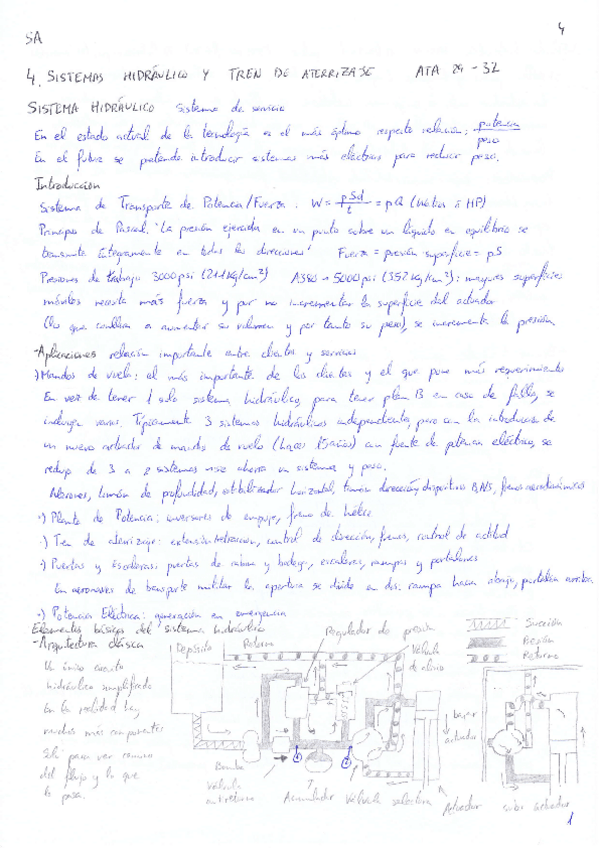 SA
4
4. SISTEMAS HIDRÁULICO Y TREN DE ATERRIZAJE ATA 29 - 32
SISTEMA HIDRÁULICO Sistema de servicio
En el estado actual de la tecnología es el más óptimo respecto relación: potencia / peso
En el futuro se pretende introducir sistemas más eléctricos para reducir peso.
Introducción
Sistema de Transporte de Potencia/Fuerza: W = pSd/t = pQ (Watios ó HP)
Principio de Pascal: "La presión ejercida en un punto sobre un líquido en equilibrio se
transmite íntegramente en todas las direcciones" Fuerza = presión · superficie = pS
Presiones de trabajo 3000psi (211Kg/cm²) A380 → 5000psi (352Kg/cm²): mayores superficies
móviles necesita más fuerza y por no incrementar la superficie del actuador
(lo que conlleva a aumentar su volumen y por tanto su peso), se incrementa la presión
-Aplicaciones relación importante entre clientes y servicios
·) Mandos de vuelo: el más importante de los clientes y el que pone más requerimientos
En vez de tener 1 solo sistema hidráulico, para tener plan B en caso de fallo, se
incluyen varios. Típicamente 3 sistemas hidráulicos independientes, pero con la introducción de
un nuevo actuador de mandos de vuelo (hace 15 años) con fuente de potencia eléctrica, se
redujo de 3 a 2 sistemas ahorra un sistema y peso.
Alerones, timón de profundidad, estabilizador horizontal, timón dirección, dispositivos, frenos aerodinámicos
·) Planta de Potencia: inversores de empuje, freno de hélice
·) Tren de aterrizaje: extensión/retracción, control de dirección, frenos, control de actitud
·) Puertas y Escaleras: puertas de cabina y bodega, escaleras, rampas y portalones
En aeronaves de transporte militar la apertura se divide en dos: rampa hacia abajo, portalón arriba
·) Potencia Eléctrica: generación en emergencia
Elementos básicos del sistema hidráulico
-Arquitectura clásica
Un único circuito
hidráulico simplificado
En la realidad hay
muchos más componentes
Solo para ver camino
del flujo y lo que
le pasa.
Depósito
Retorno
Regulador de presión
Válvula de alivio
Succión
Presión
Retorno
bajar actuador
Bomba
Válvula antiretorno
Acumulador
Válvula selectora
Actuador
subir actuador
1